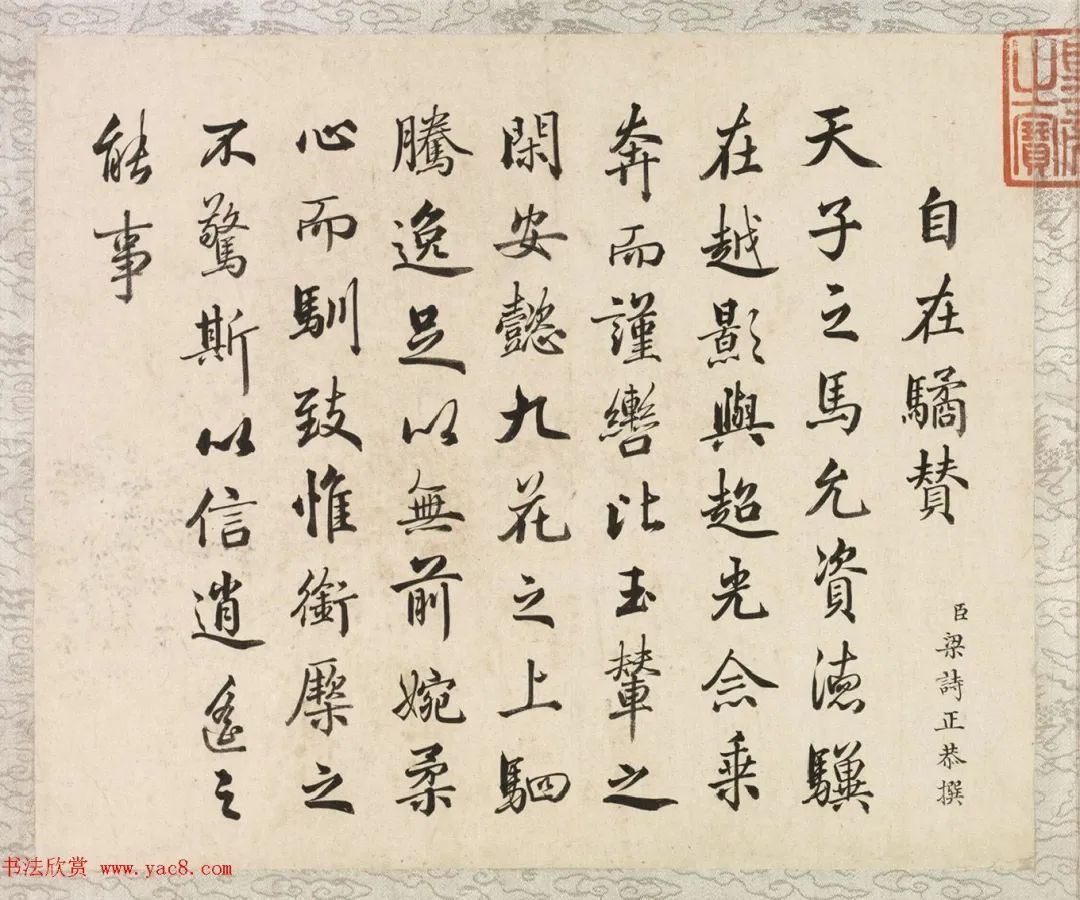 之寶
自在驈賛
臣梁詩正恭撰
天子之馬允資德驥
在越影與超光念乗
奔而謹轡比玉輦之
閑安懿九花之上駟
騰逸足以無前婉柔
心而馴致惟銜橛之
不驚斯以信逍遙之
能事
书法欣赏 www.yac8.com